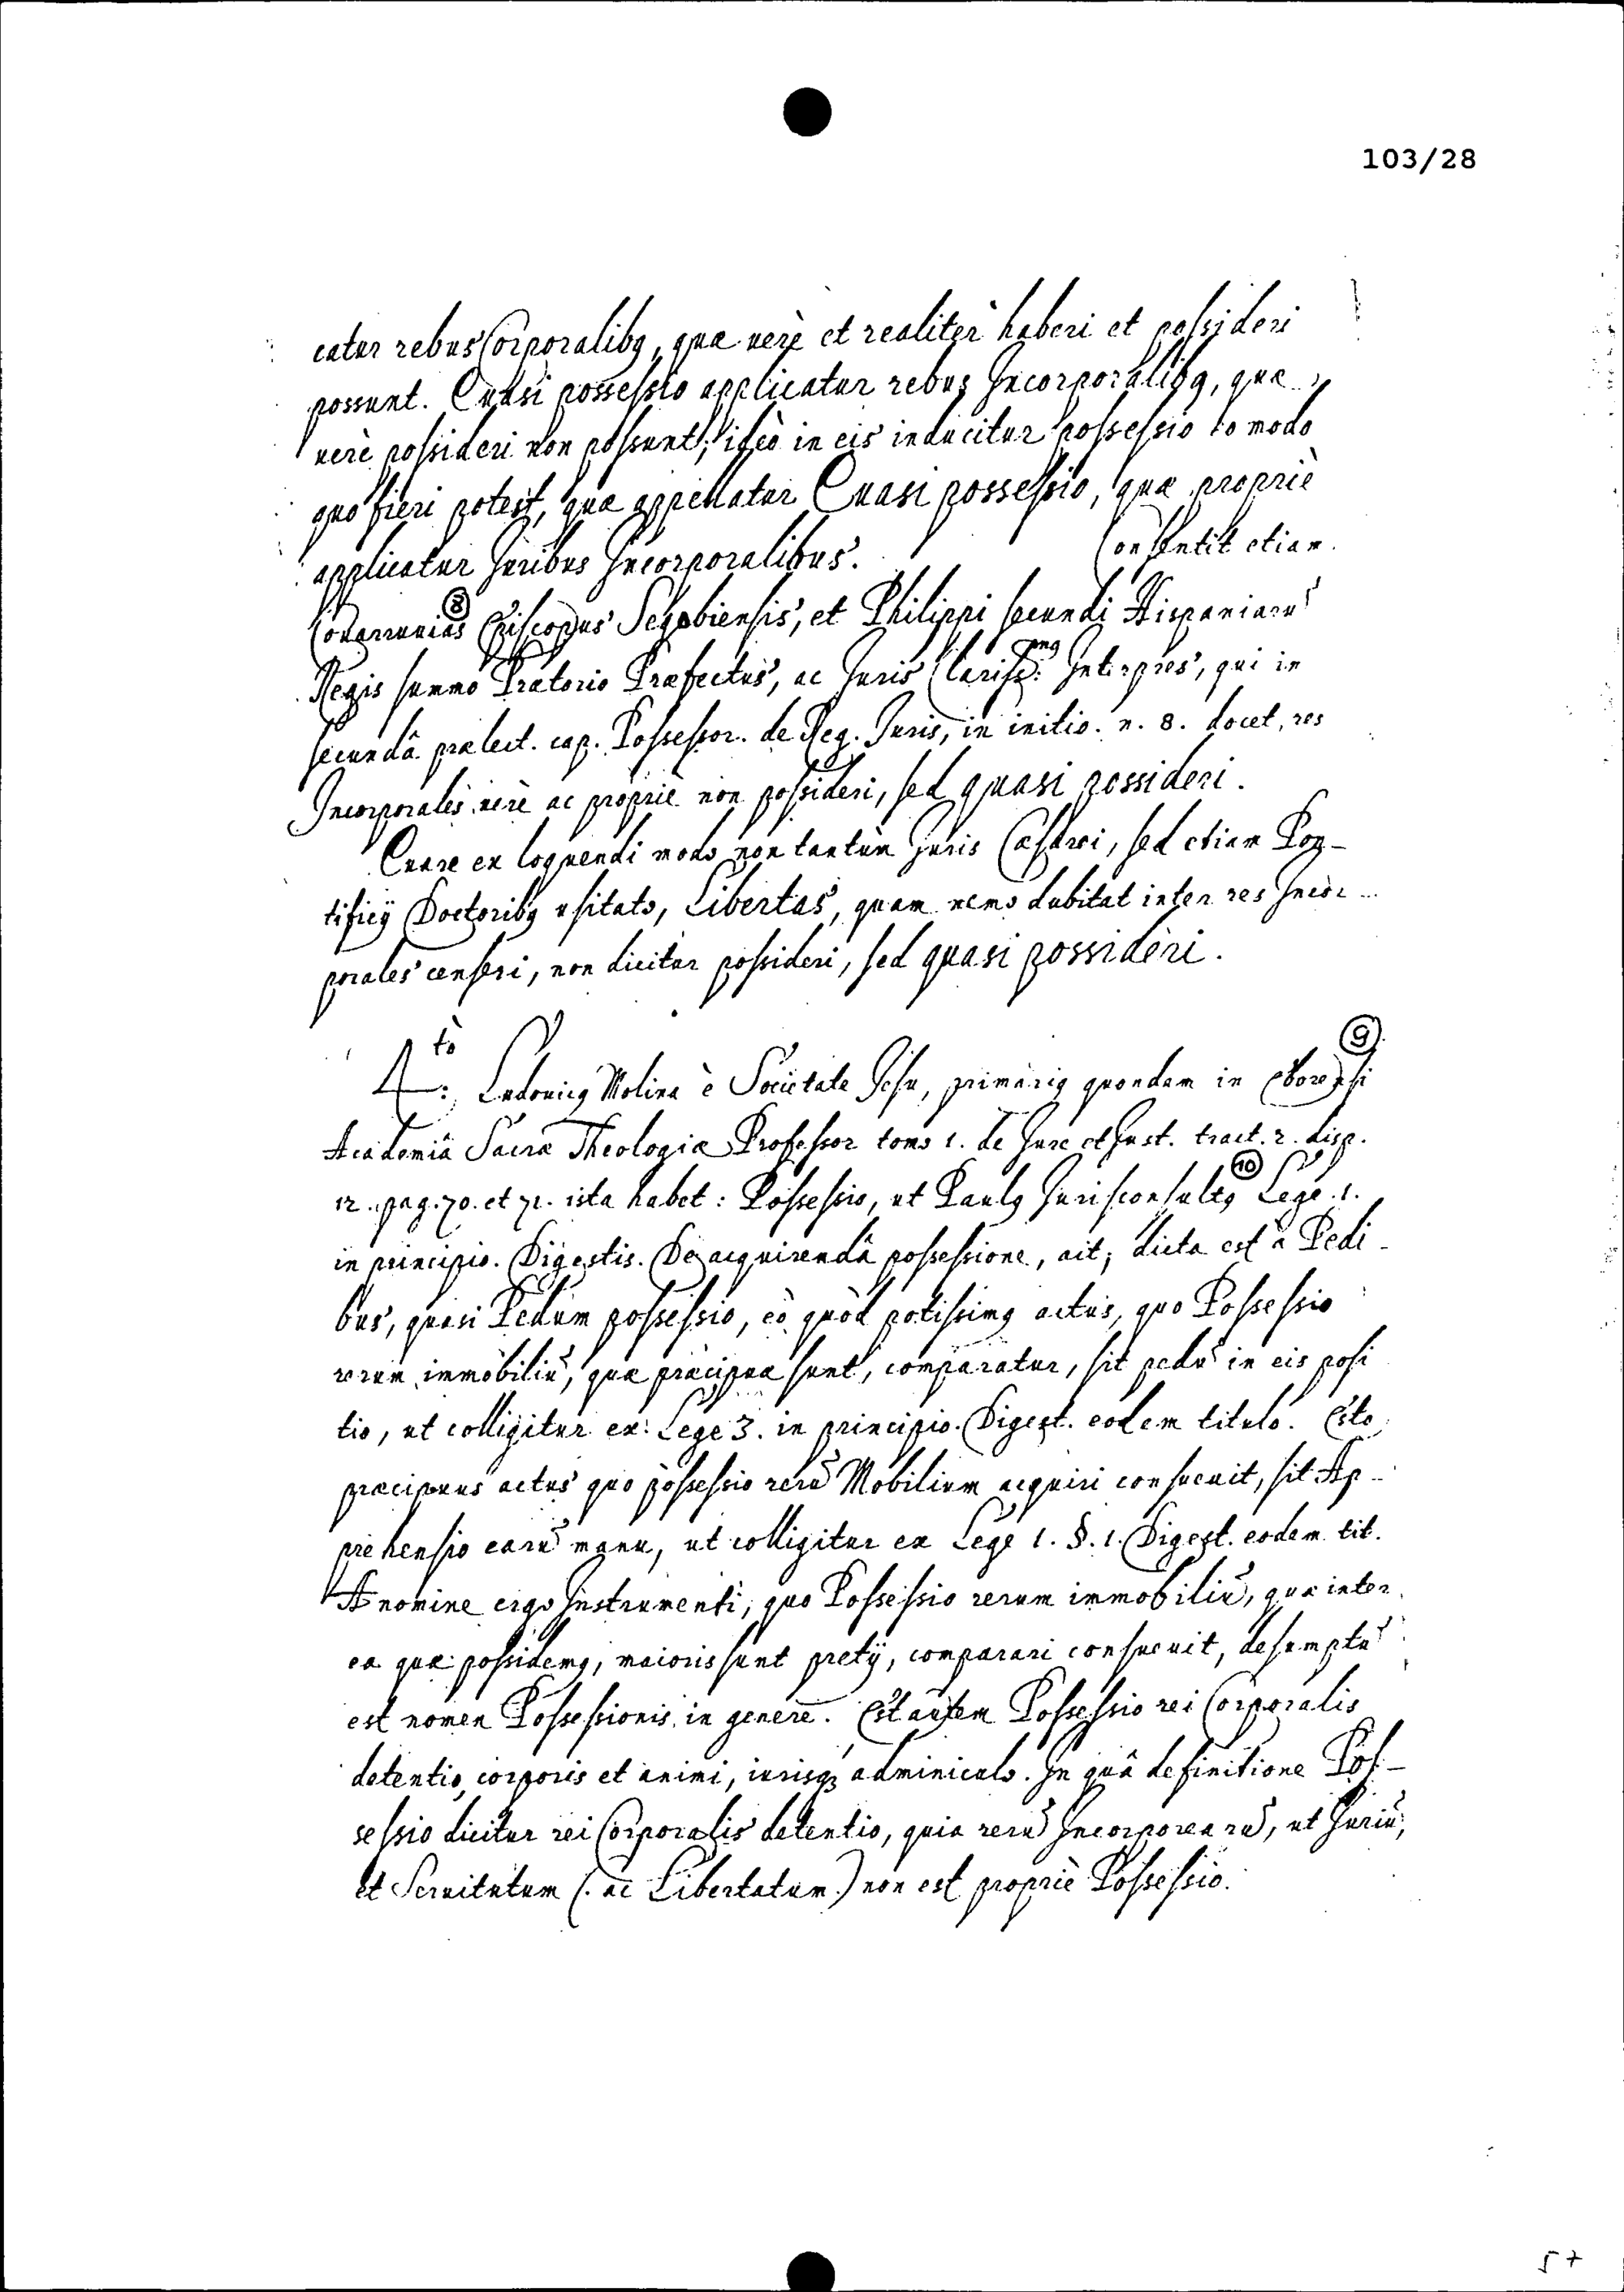 103/28
catur rebus Corporalibq, quæ verè et realiter haberi et possideri
possunt. Quasi possessio applicatur rebus Incorporalibq, quæ
verè possideri non possunt; ideò in eis inducitur possessio eo modo
quo fieri potest, quæ appellatur Quasi possessio, quæ propriè
applicatur Juribus Incorporalibus. Consentit etiam
Covarruvias ⑧ Episcopus Segobiensis, et Philippi secundi Hispaniarũ
Regis summo Prætorio Præfectus, ac Juris Clariss:mq Interpres, qui in
secundâ prælect. cap. Possessor. de Reg. Juris, in initio. n. 8. docet, res
Incorporales verè ac propriè non possideri, sed quasi possideri.
Quare ex loquendi modo non tantùm Juris Cæsarei, sed etiam Pon-
tificij Doctoribq usitato, Libertas, quam nemo dubitat inter res Incor-
porales censeri, non dicitur possideri, sed quasi possideri.
4:tò Ludovicq Molina è Societate Jesu, primariq quondam in Eborensi ⑨
Academiâ Sacræ Theologiæ Professor tomo 1. de Jure et Just. tract. 2. disp.
12. pag. 70. et 71. ista habet: Possessio, ut Paulq Jurisconsultq ⑩ Lege 1.
in principio. Digestis. De acquirendâ possessione, ait; dicta est à Pedi-
bus, quasi Pedum possessio, eò quòd potissimq actus, quo Possessio
rerum immobiliũ, quæ præcipuæ sunt, comparatur, sit pedũ in eis posi
tio, ut colligitur ex Lege 3. in principio. Digest. eodem titulo. Esto
præcipuus actus quo possessio rerũ Mobilium acquiri consuevit, sit Ap-
prehensio earũ manu, ut colligitur ex Lege 1. §. 1. Digest. eodem tit.
A nomine ergo Instrumenti, quo Possessio rerum immobiliũ, quæ inter
ea quæ possidemq, maioris sunt pretij, comparari consuevit, desumptũ
est nomen Possessionis in genere. Est autem Possessio rei Corporalis
detentio, corporis et animi, iurisq; adminiculo. In quâ definitione Pos-
sessio dicitur rei Corporalis detentio, quia rerũ Incorporearũ, ut Juriũ,
et Servitutum (. ac Libertatum.) non est propriè Possessio.
57